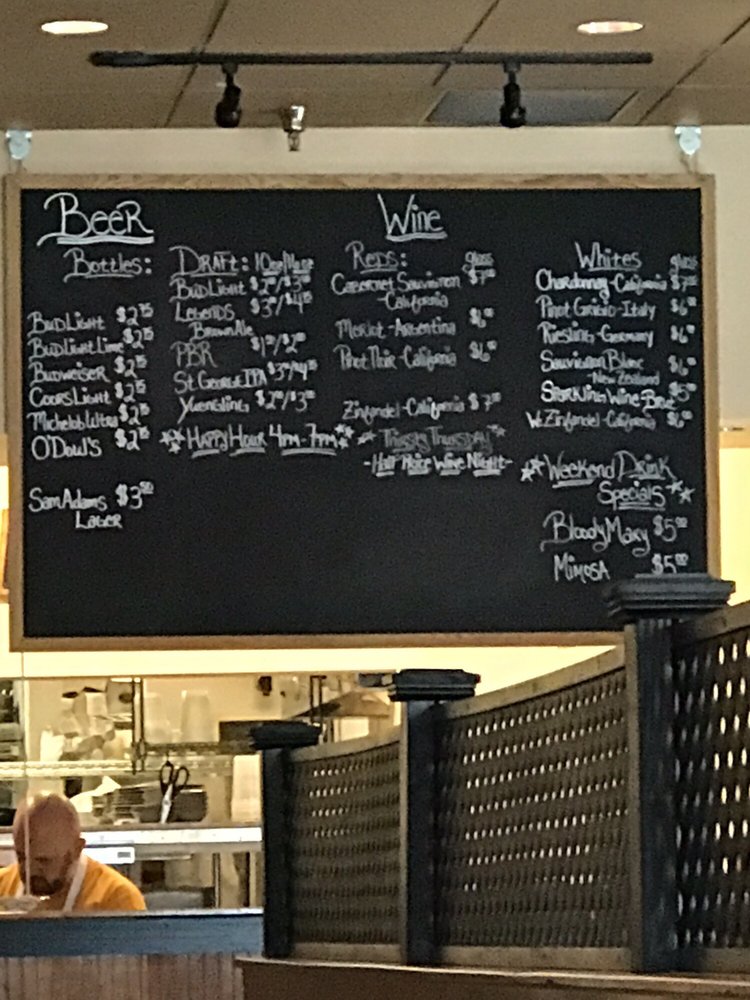 Beer
Bottles:
Bud Light $2.75
Bud Light Lime $2.75
Budweiser $2.75
Coors Light $2.75
Michelob Ultra $2.75
O'Doul's $2.75
Sam Adams $3.50
Lager
Draft: 10oz/16oz
Bud Light
Legends
Brown Ale
PBR
St. George IPA
Yuengling
Happy Hour 4pm-7pm
Wine
Reds: glass
Cabernet Sauvignon $7.00
-California
Merlot-Argentina $6.00
Pinot Noir-California $6.00
Zinfandel-California $7.00
Thirsty Thursday
-Half Price Wine Night-
Whites glass
Chardonnay-California
Pinot Grigio-Italy $6.00
Riesling-Germany $6.00
Sauvignon Blanc $6.00
-New Zealand
Sparkling Wine-Brut $5.00
W. Zinfandel-California $6.00
Weekend Drink
Specials
Bloody Mary $5.00
Mimosa $5.00